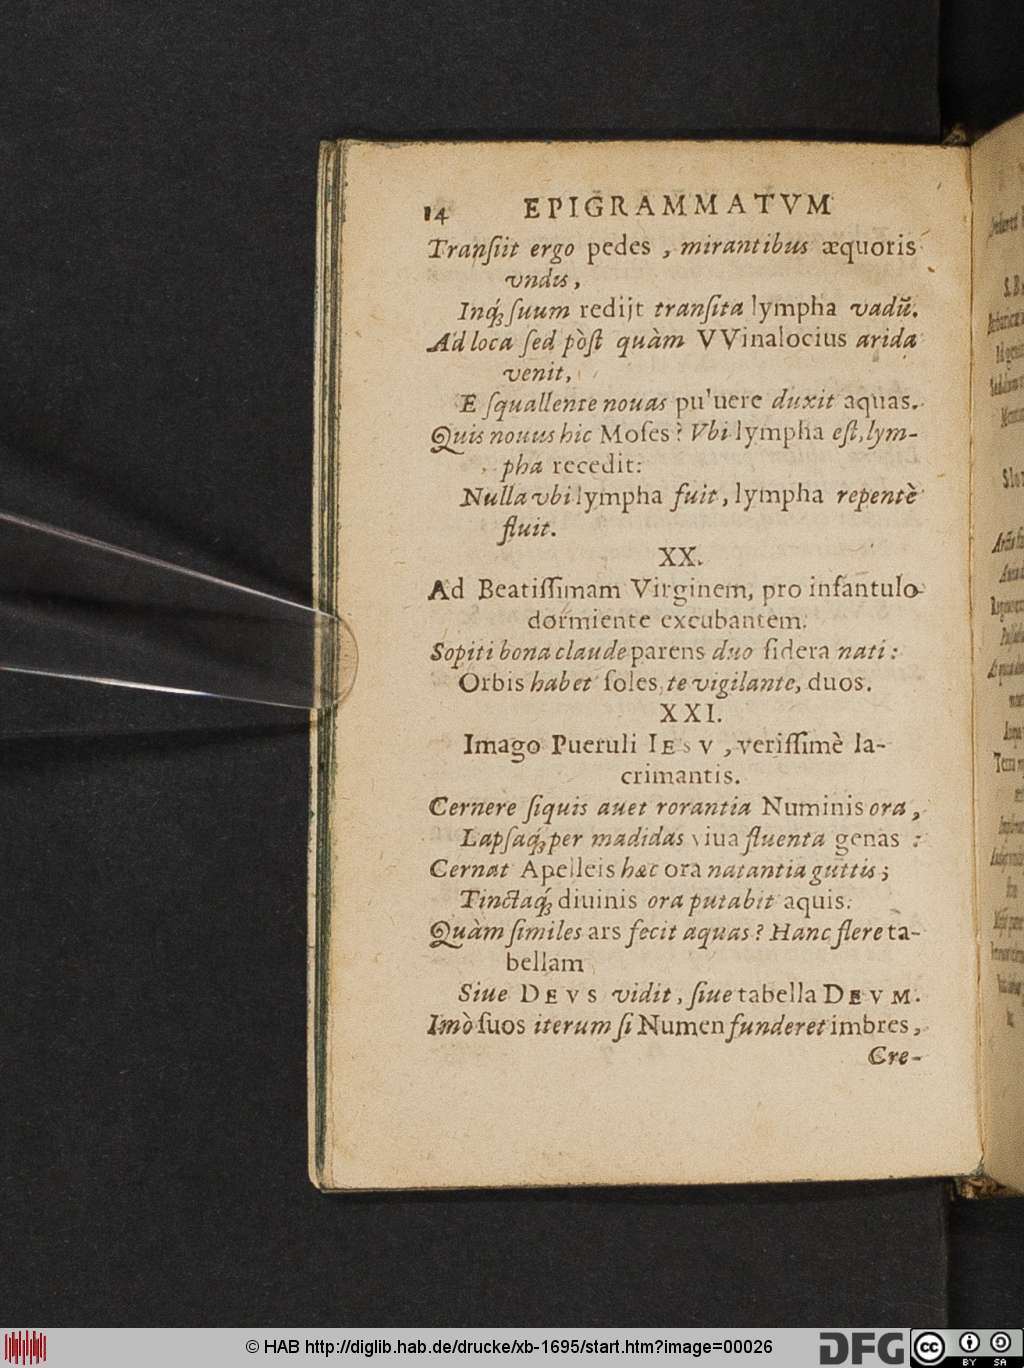 14 EPIGRAMMATVM
Tranſiit ergo pedes , mirantibus æquoris
vndis,
Inq́; ſuum redijt tranſita lympha vadū.
Ad loca ſed pòſt quàm VVinalocius arida
venit,
E ſquallente nouas pu'uere duxit aquas.
Quis nouus hic Moſes? Vbi lympha eſt, lym-
pha recedit:
Nulla vbi lympha fuit, lympha repentè
fluit.
XX.
Ad Beatiſſimam Virginem, pro infantulo
dormiente excubantem.
Sopiti bona claude parens duo ſidera nati :
Orbis habet ſoles, te vigilante, duos.
XXI.
Imago Pueruli IESV , veriſſimè la-
crimantis.
Cernere ſiquis auet rorantia Numinis ora ,
Lapſaq́; per madidas viua fluenta genas :
Cernat Apelleis hæc ora natantia guttis ;
Tinctaq́; diuinis ora putabit aquis.
Quàm ſimiles ars fecit aquas? Hanc flere ta-
bellam
Siue DEVS vidit, ſiue tabella DEVM.
Imò ſuos iterum ſi Numen funderet imbres ,
Cre-
© HAB http://diglib.hab.de/drucke/xb-1695/start.htm?image=00026
DFG
cc
BY SA